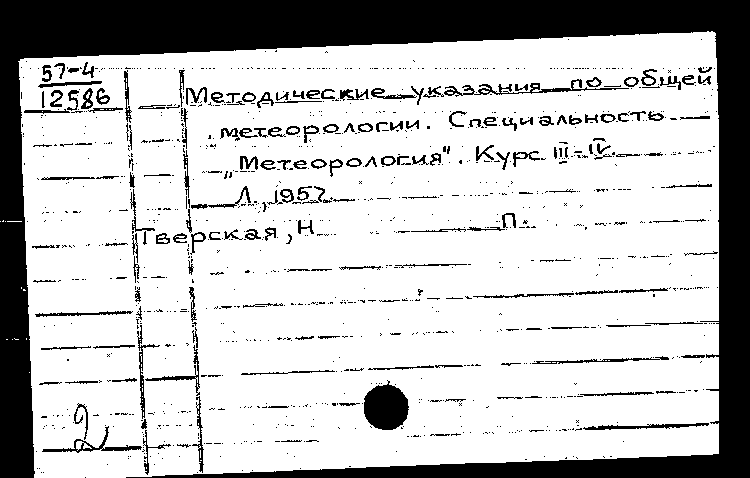 57-4
12586
Методические указания по общей
метеорологии. Специальность
„Метеорология". Курс III-IV.
Л., 1957.
Тверская, Н П.
2